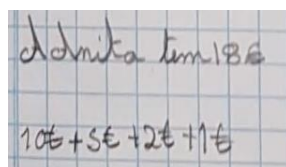 A Anita tem 18€
10€+5€+2€+1€